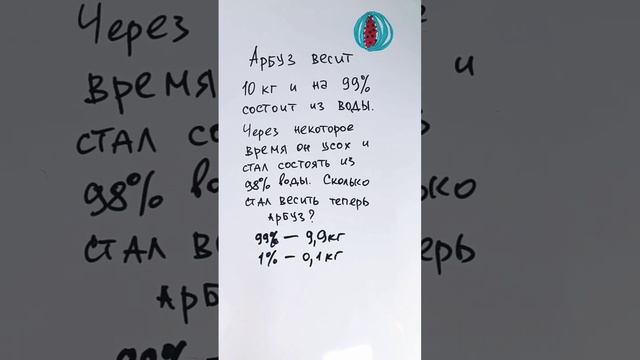 Арбуз весит
10 кг и на 99%
состоит из воды.
Через некоторое
время он усох и
стал состоять из
98% воды. Сколько
стал весить теперь
арбуз?
99% — 9,9кг
1% — 0,1кг